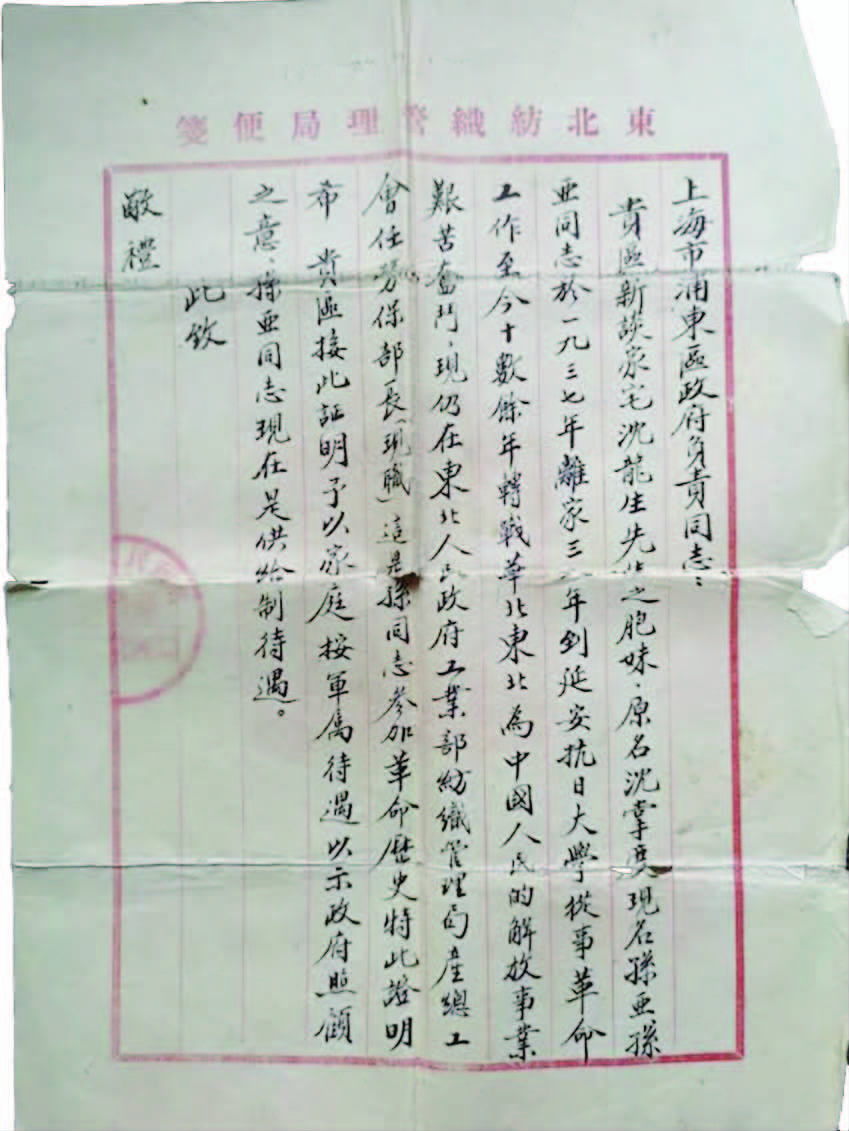 東北紡織管理局便箋
上海市浦東區政府負責同志：
貴區新談家宅沈龍生先生之胞妹．原名沈掌珍現名孫亞孫
亞同志於一九三七年離家三八年到延安抗日大學從事革命
工作至今十數餘年轉戰華北東北為中國人民的解放事業
艱苦奮鬥，現仍在東北人民政府工業部紡織管理局產總工
會任勞保部長（現職）這是孫同志參加革命歷史特此證明
希　貴區接此証明予以家庭按軍屬待遇以示政府照顧
之意，孫亞同志現在是供给制待遇。
此致
敬禮